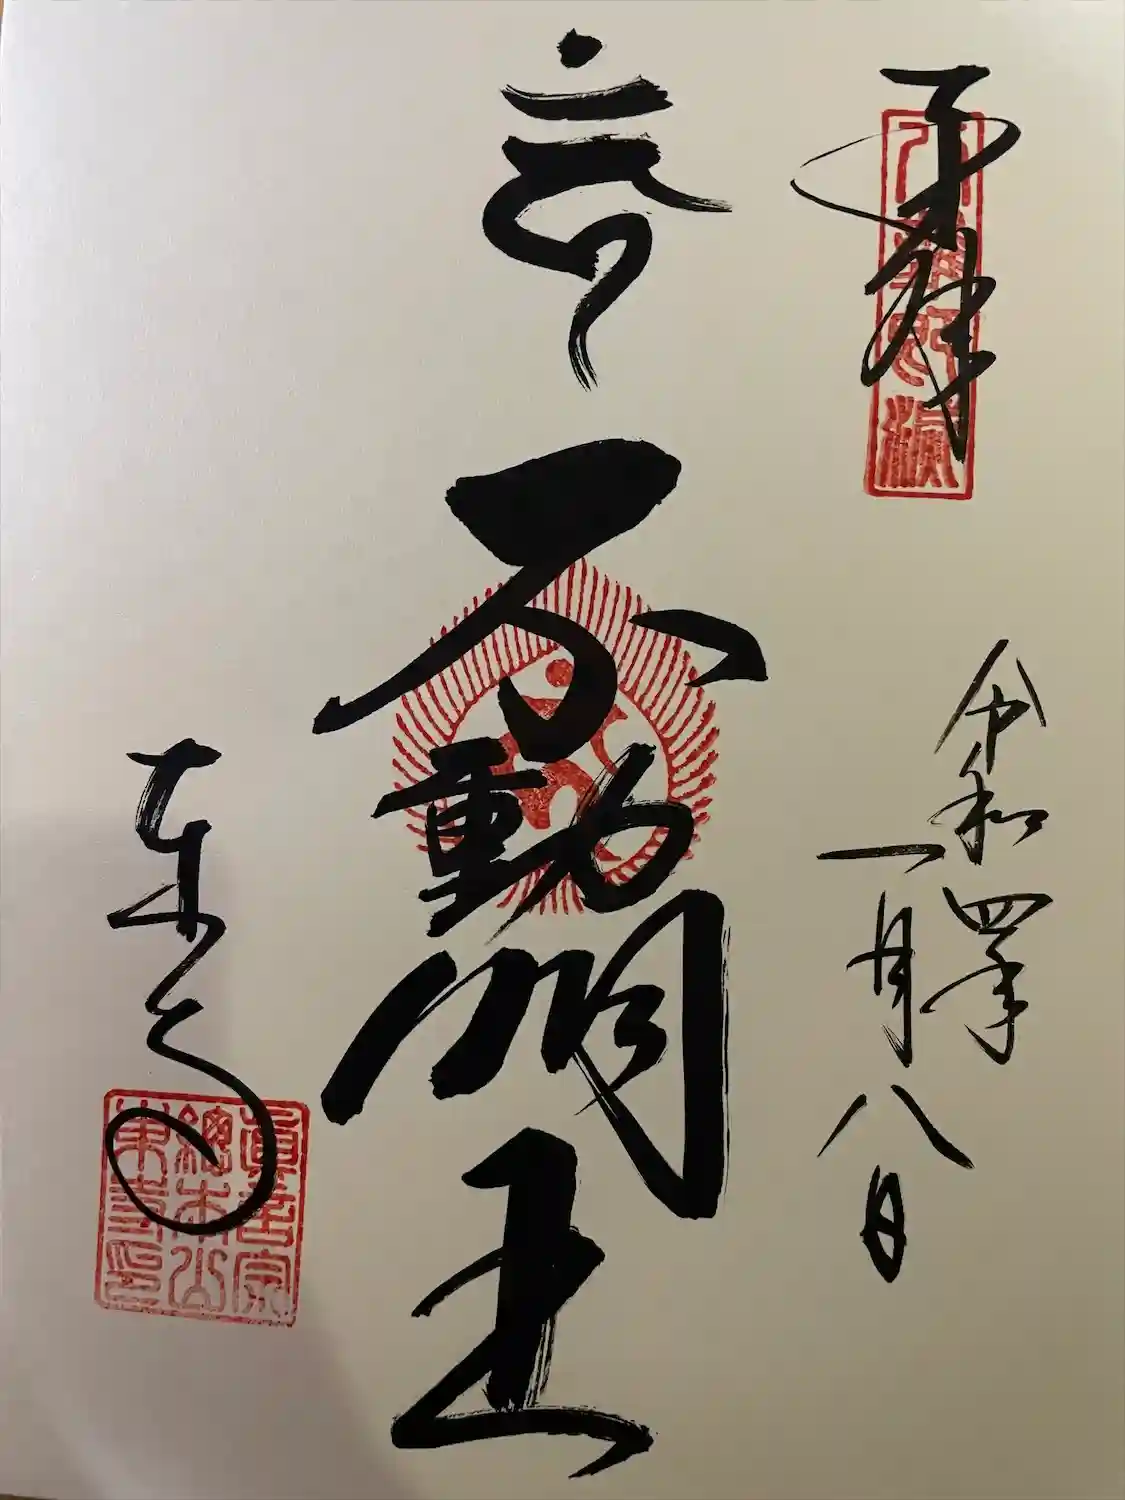 奉拝
八幡野派
令和四年
一月八日
不動明王
東寺
真言宗
総本山
東寺印